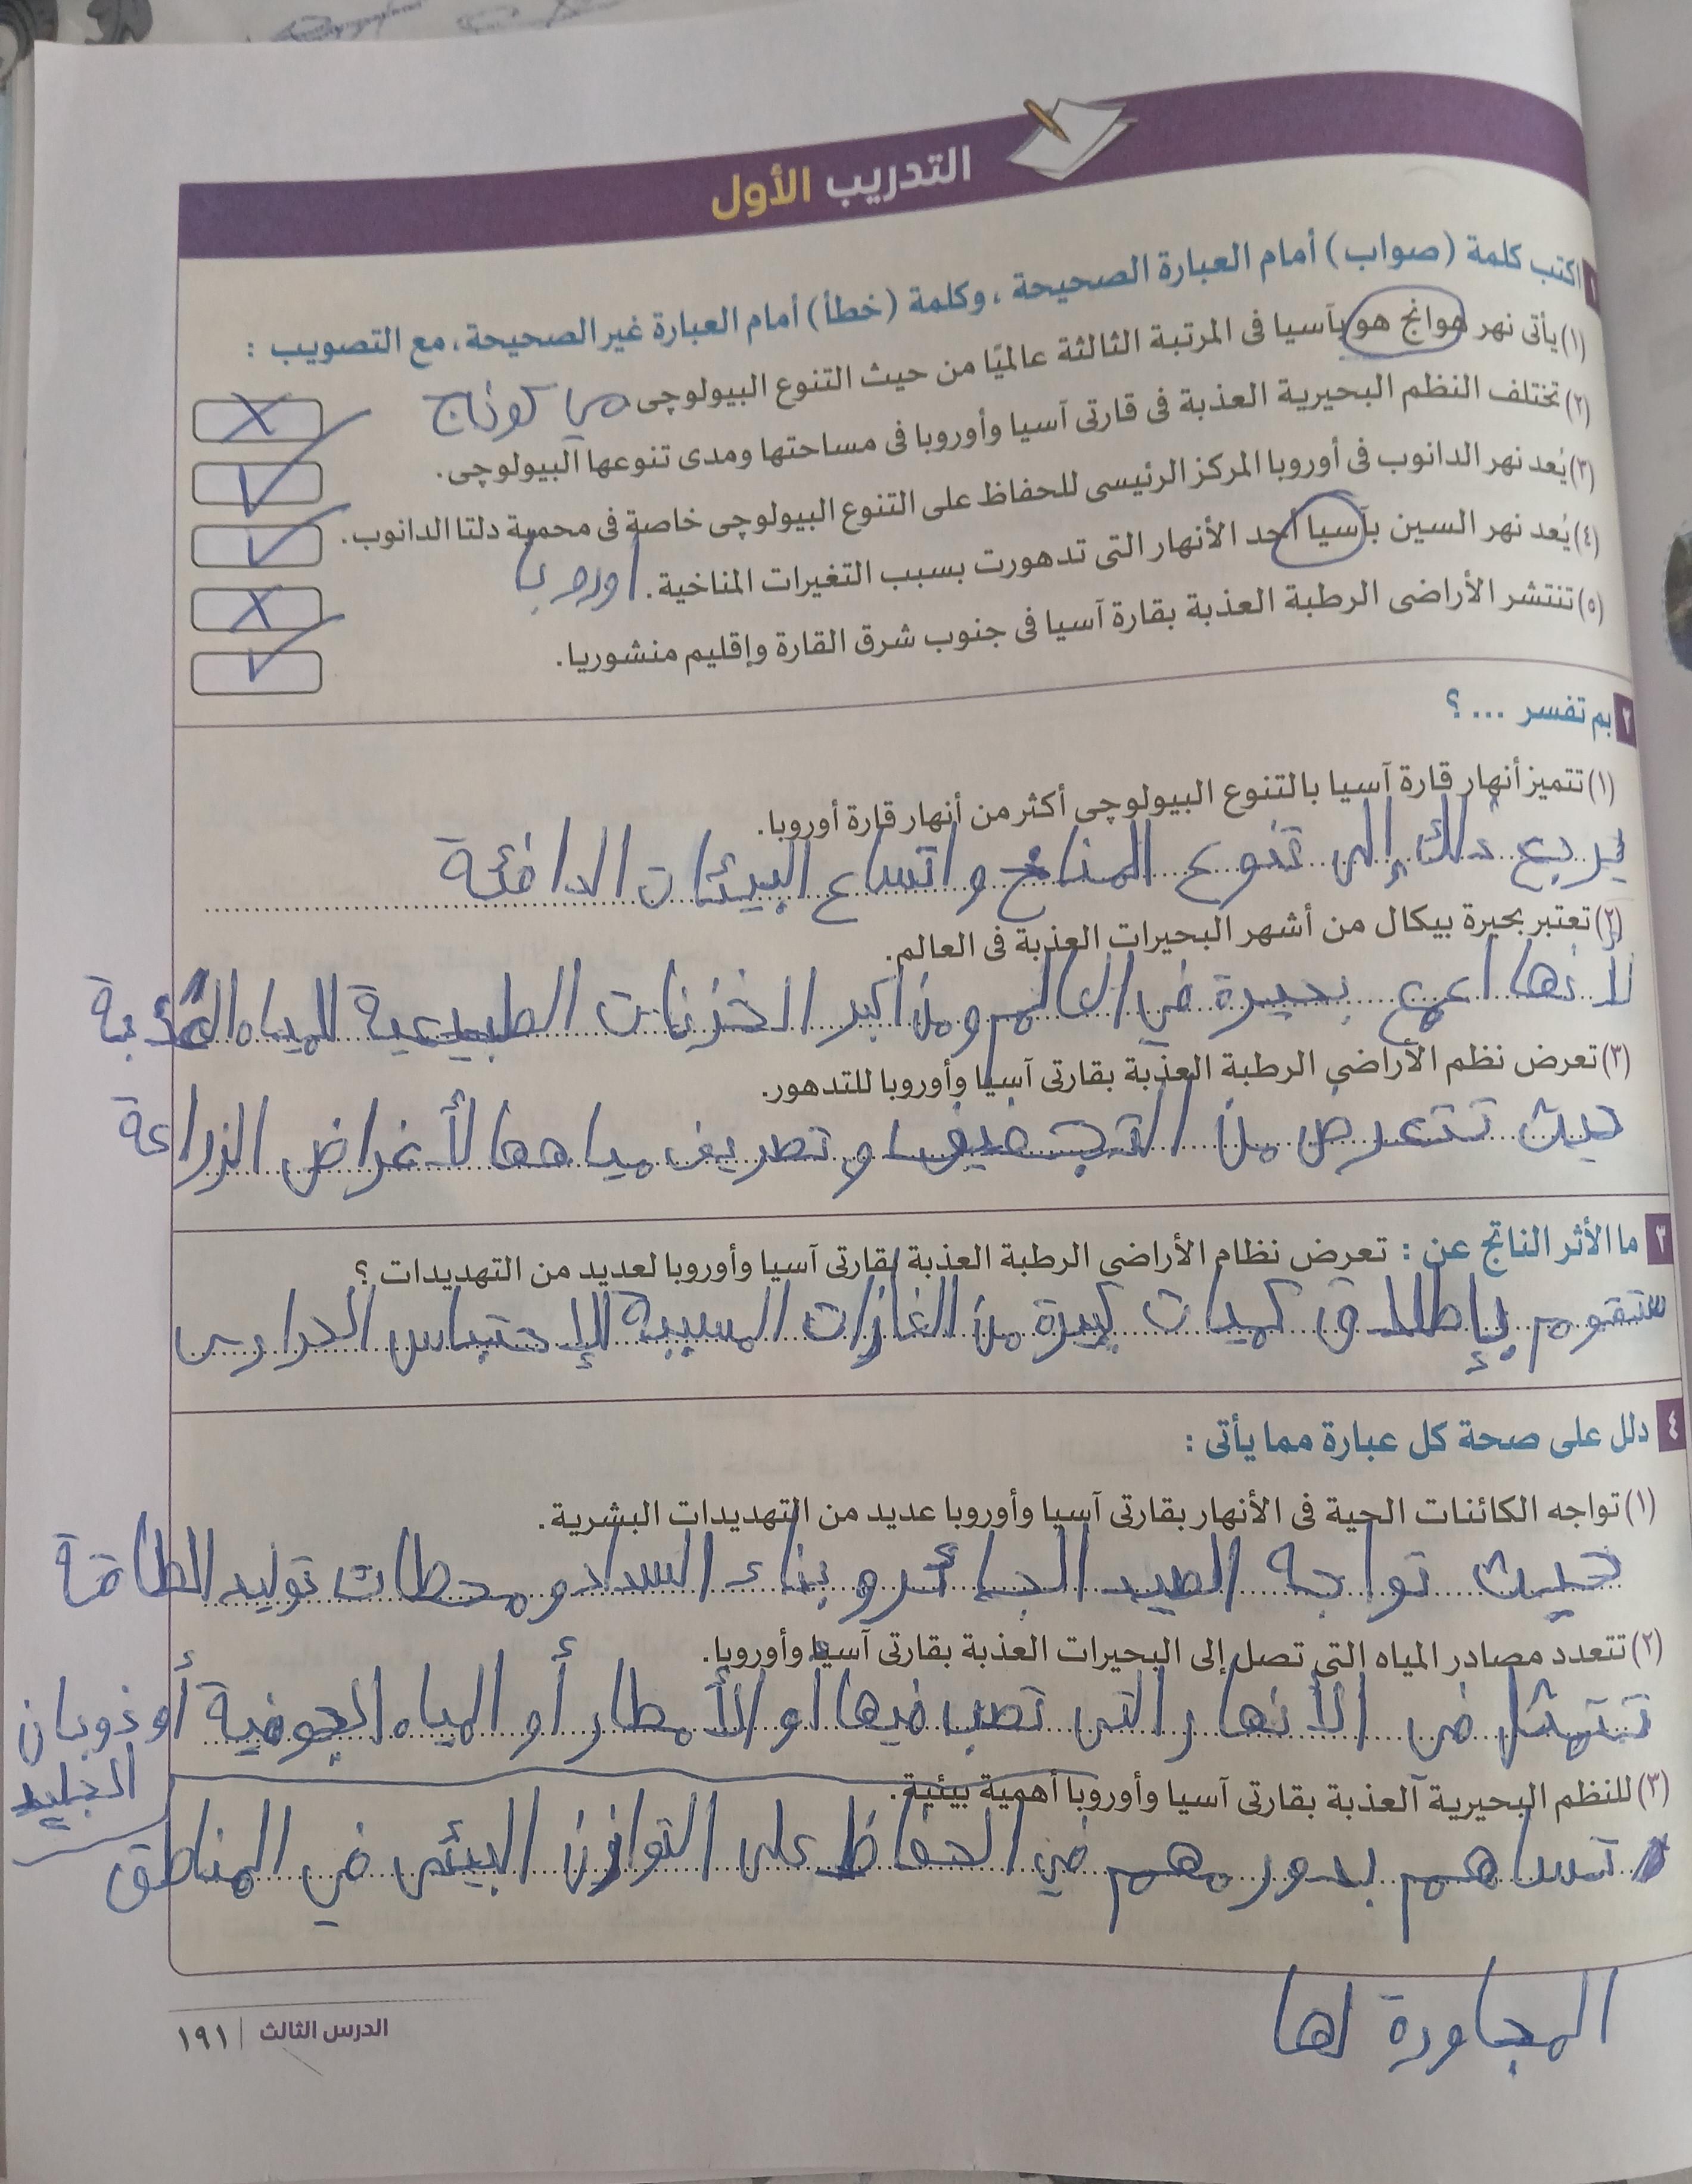 التدريب الأول
١ اكتب كلمة (صواب) أمام العبارة الصحيحة، وكلمة (خطأ) أمام العبارة غير الصحيحة، مع التصويب :
(١) يأتى نهر هوانج هو بآسيا فى المرتبة الثالثة عالميًا من حيث التنوع البيولوجى. ميكونج X
(٢) تختلف النظم البحيرية العذبة فى قارتى آسيا وأوروبا فى مساحتها ومدى تنوعها البيولوجى. ✓
(٣) يُعد نهر الدانوب فى أوروبا المركز الرئيسى للحفاظ على التنوع البيولوجى خاصة فى محمية دلتا الدانوب. ✓
(٤) يُعد نهر السين بآسيا أحد الأنهار التى تدهورت بسبب التغيرات المناخية. اوروبا X
(٥) تنتشر الأراضى الرطبة العذبة بقارة آسيا فى جنوب شرق القارة وإقليم منشوريا. ✓
٢ بم تفسر ... ؟
(١) تتميز أنهار قارة آسيا بالتنوع البيولوجى أكثر من أنهار قارة أوروبا.
يرجع ذلك إلى تنوع المناخ واتساع البيئات الدافئة
(٢) تعتبر بحيرة بيكال من أشهر البحيرات العذبة فى العالم.
لأنها اعمق بحيرة في العالم ومن اكبر الخزنات الطبيعية للمياه العذبة
(٣) تعرض نظم الأراضي الرطبة العذبة بقارتى آسيا وأوروبا للتدهور.
حيث تتعرض من التجفيف وتصريف مياهها لأغراض الزراعة
٣ ما الأثر الناتج عن : تعرض نظام الأراضى الرطبة العذبة بقارتى آسيا وأوروبا لعديد من التهديدات ؟
ستقوم بإطلاق كميات كبيرة من الغازات المسببة للإحتباس الحرارى
٤ دلل على صحة كل عبارة مما يأتى :
(١) تواجه الكائنات الحية فى الأنهار بقارتى آسيا وأوروبا عديد من التهديدات البشرية.
حيث تواجه الصيد الجائر وبناء السداد ومحطات توليد الطاقة
(٢) تتعدد مصادر المياه التى تصل إلى البحيرات العذبة بقارتى آسيا وأوروبا.
تتمثل فى الأنهار التى تصب فيها أو الأمطار أو المياه الجوفية أو ذوبان
الجليد
(٣) للنظم البحيرية العذبة بقارتى آسيا وأوروبا أهمية بيئية.
تساهم بدور مهم في الحفاظ على التوازن البيئى في المناطق
المجاورة لها
الدرس الثالث | ١٩١